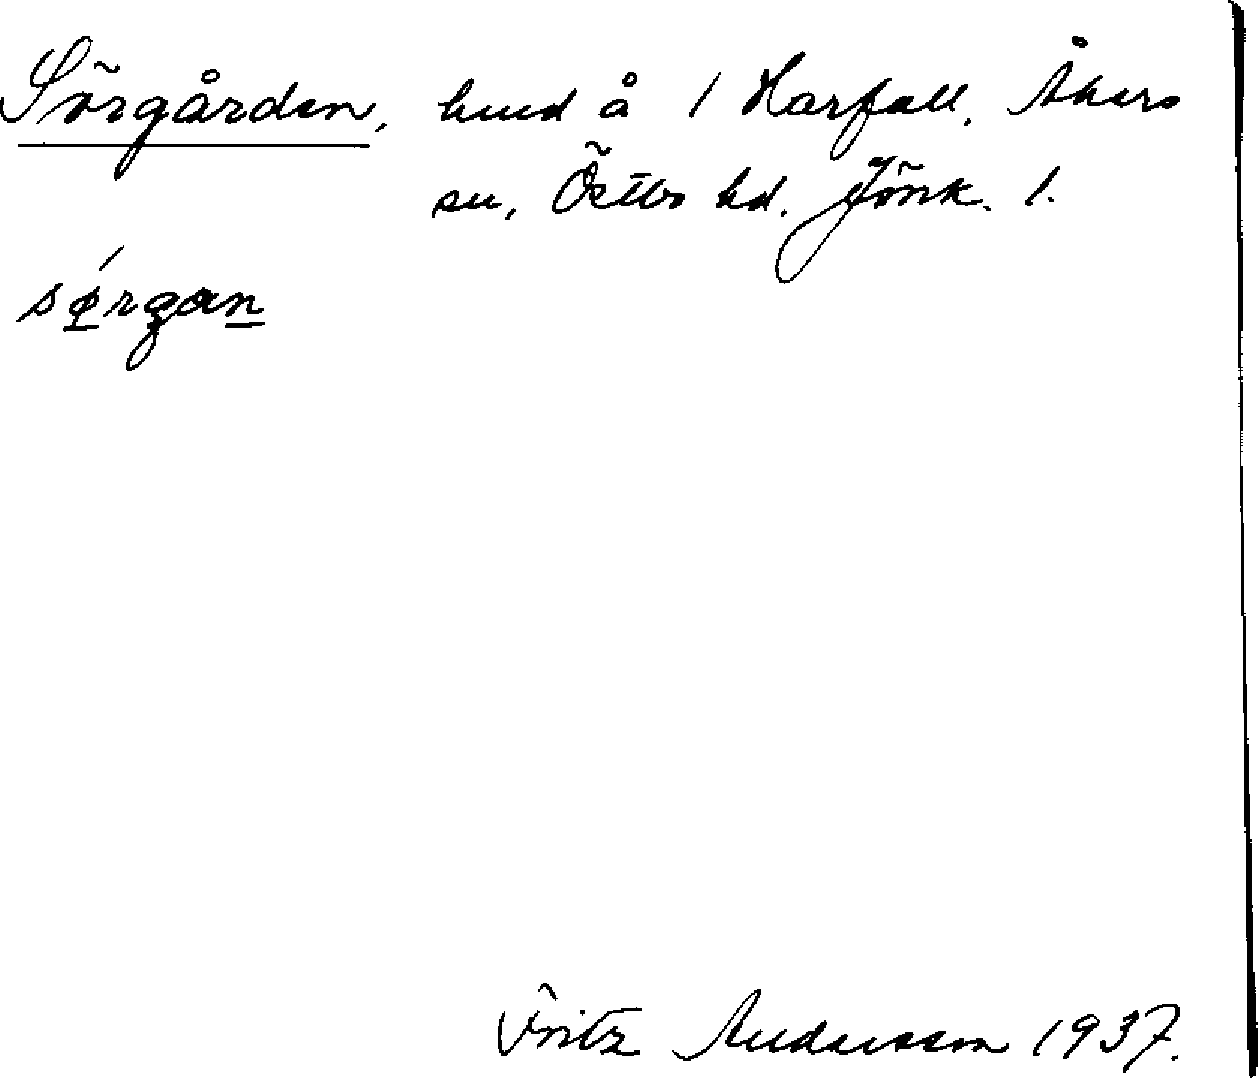 Sörgården, hmd å 1 Harfall, Åkers
sn, Östbo hd. Jönk. l.
sørgan
Fritz Andersson 1937.